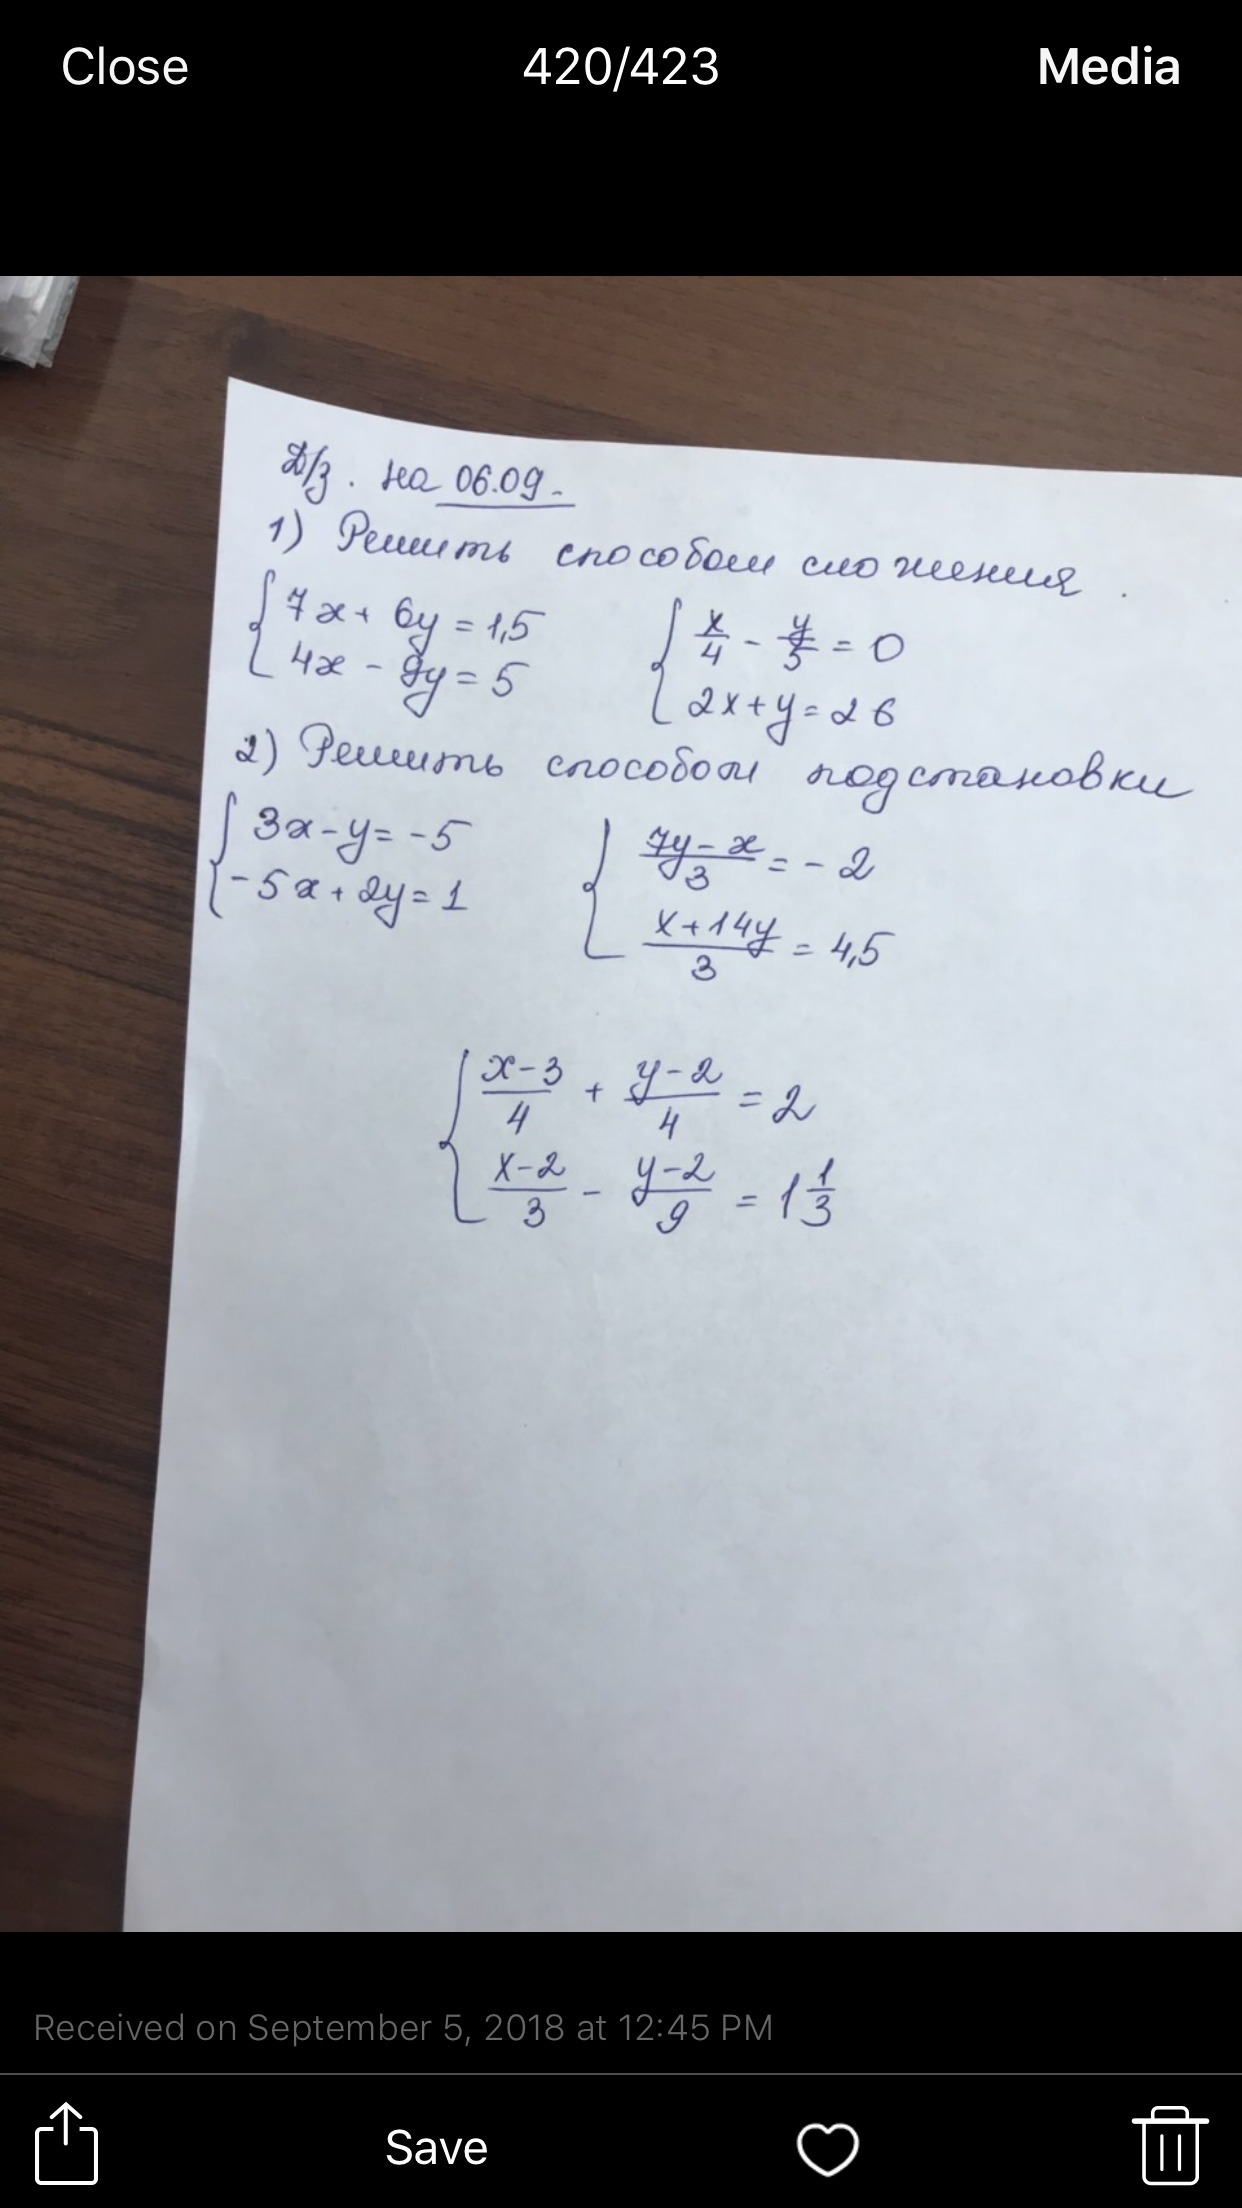 Close 420/423 Media
Д/з. на 06.09.
1) Решить способом сложения.
{ 7x + 6y = 1,5
4x - 9y = 5
{ x/4 - y/5 = 0
2x + y = 26
2) Решить способом подстановки
{ 3x - y = -5
-5x + 2y = 1
{ 7y - x/3 = -2
x + 14y/3 = 4,5
{ x-3/4 + y-2/4 = 2
x-2/3 - y-2/9 = 1 1/3
Received on September 5, 2018 at 12:45 PM
Save